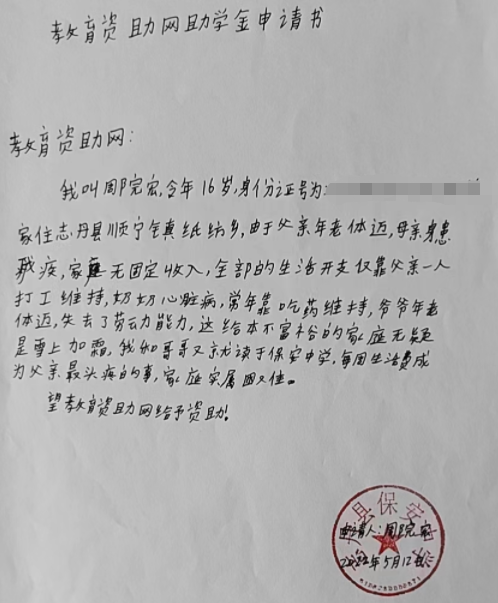 教育资助网助学金申请书
教育资助网:
我叫周院宏,今年16岁,身份证号为:
家住志丹县顺宁镇纸坊乡,由于父亲年老体迈,母亲身患
残疾,家庭无固定收入,全部的生活开支仅靠父亲一人
打工维持,奶奶心脏病,常年靠吃药维持,爷爷年老
体迈,失去了劳动能力,这给本不富裕的家庭无疑
是雪上加霜,我和哥哥又就读于保安中学,每周生活费成
为父亲最头疼的事,家庭实属困难。
望教育资助网给予资助!
县保安
申请人:周院宏
2022年5月12日